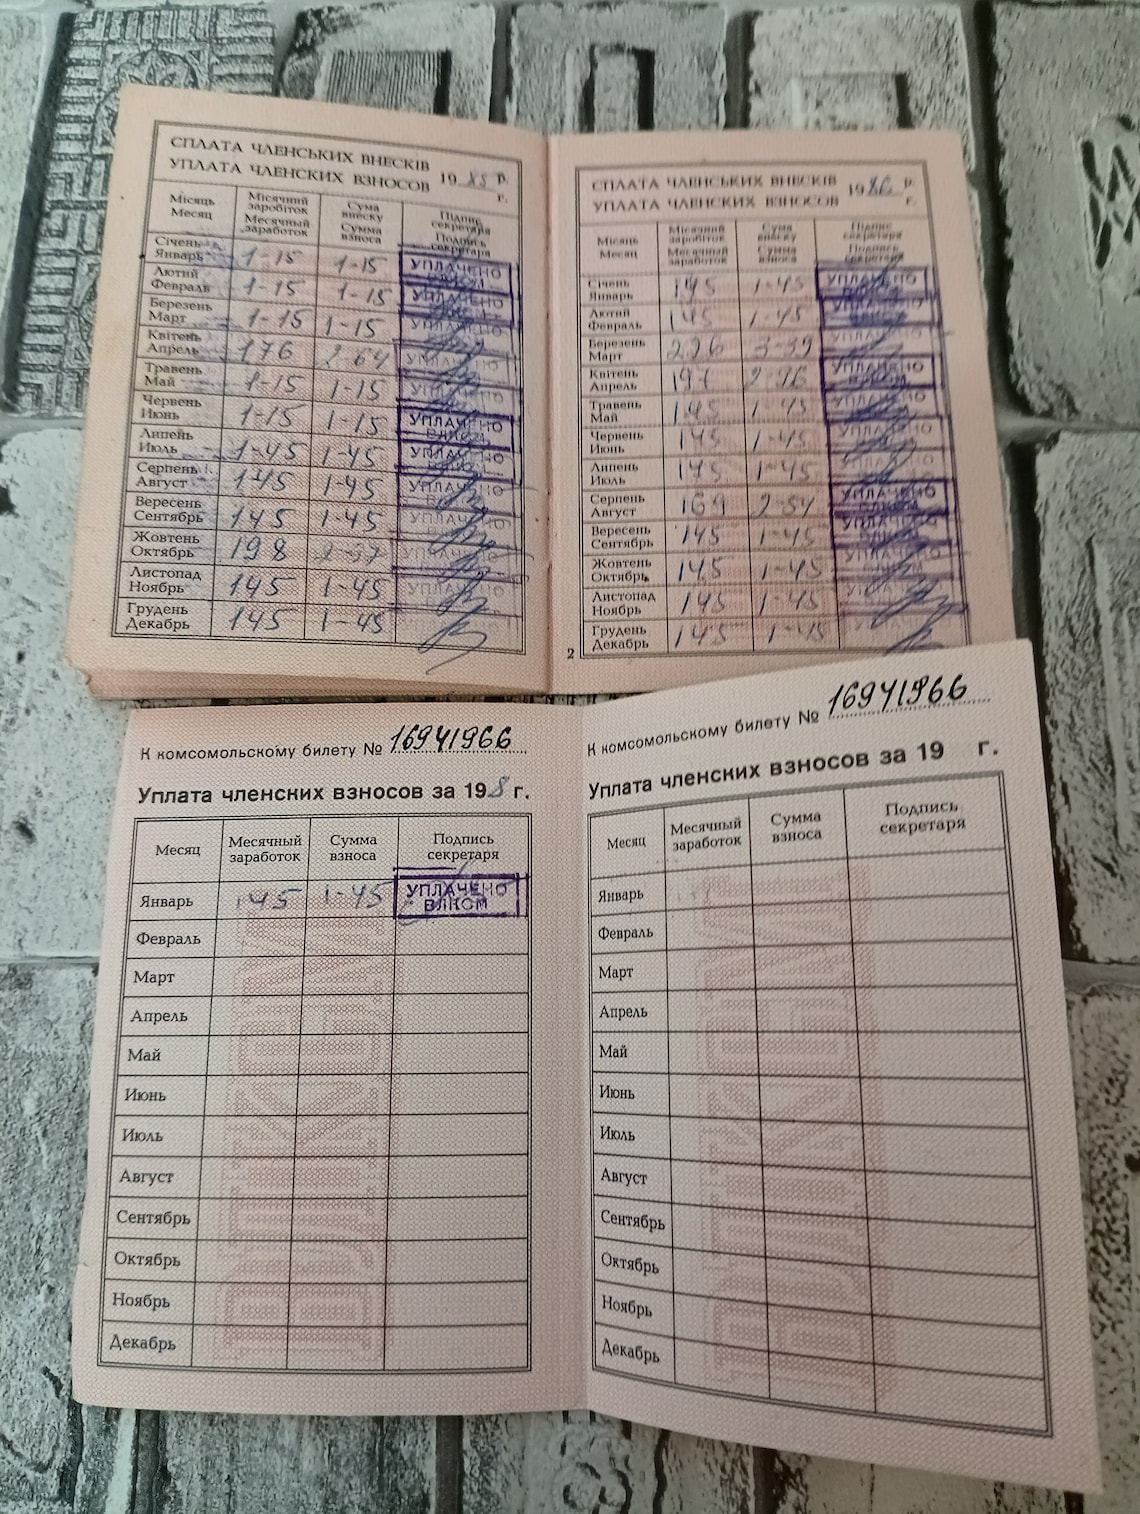 СПЛАТА ЧЛЕНСЬКИХ ВНЕСКІВ
УПЛАТА ЧЛЕНСКИХ ВЗНОСОВ 1985 р.
г.
Місяць Місячний заробіток Сума внеску Підпис секретаря
Месяц Месячный заработок Сумма взноса Подпись секретаря
Січень
Январь 1-15 1-15 УПЛАЧЕНО ВЛКСМ
Лютий
Февраль 1-15 1-15 УПЛАЧЕНО
Березень
Март 1-15 1-15 УПЛАЧЕНО
Квітень
Апрель 176 2-64 УПЛАЧЕНО
Травень
Май 1-15 1-15 УПЛАЧЕНО
Червень
Июнь 1-15 1-15 УПЛАЧЕНО ВЛКСМ
Липень
Июль 1-45 1-45 УПЛАЧЕНО
Серпень
Август 145 1-45 УПЛАЧЕНО
Вересень
Сентябрь 145 1-45 УПЛАЧЕНО
Жовтень
Октябрь 198 2-97 УПЛАЧЕНО
Листопад
Ноябрь 145 1-45 УПЛАЧЕНО
Грудень
Декабрь 145 1-45
СПЛАТА ЧЛЕНСЬКИХ ВНЕСКІВ
УПЛАТА ЧЛЕНСКИХ ВЗНОСОВ 1986 р.
г.
Місяць Місячний заробіток Сума внеску Підпис секретаря
Месяц Месячный заработок Сумма взноса Подпись секретаря
Січень
Январь 145 1-45 УПЛАЧЕНО
Лютий
Февраль 145 1-45 УПЛАЧЕНО
Березень
Март 226 3-39 УПЛАЧЕНО
Квітень
Апрель 197 2-96 УПЛАЧЕНО
Травень
Май 145 1-45 УПЛАЧЕНО
Червень
Июнь 145 1-45 УПЛАЧЕНО
Липень
Июль 145 1-45
Серпень
Август 169 2-54 УПЛАЧЕНО ВЛКСМ
Вересень
Сентябрь 145 1-45 УПЛАЧЕНО ВЛКСМ
Жовтень
Октябрь 145 1-45 УПЛАЧЕНО
Листопад
Ноябрь 145 1-45
Грудень
Декабрь 145 1-45
2
К комсомольскому билету № 16941966
Уплата членских взносов за 198 г.
Месяц Месячный заработок Сумма взноса Подпись секретаря
Январь 145 1-45 УПЛАЧЕНО ВЛКСМ
Февраль
Март
Апрель
Май
Июнь
Июль
Август
Сентябрь
Октябрь
Ноябрь
Декабрь
ВЛКСМ
К комсомольскому билету № 16941966
Уплата членских взносов за 19 г.
Месяц Месячный заработок Сумма взноса Подпись секретаря
Январь
Февраль
Март
Апрель
Май
Июнь
Июль
Август
Сентябрь
Октябрь
Ноябрь
Декабрь
ВЛКСМ